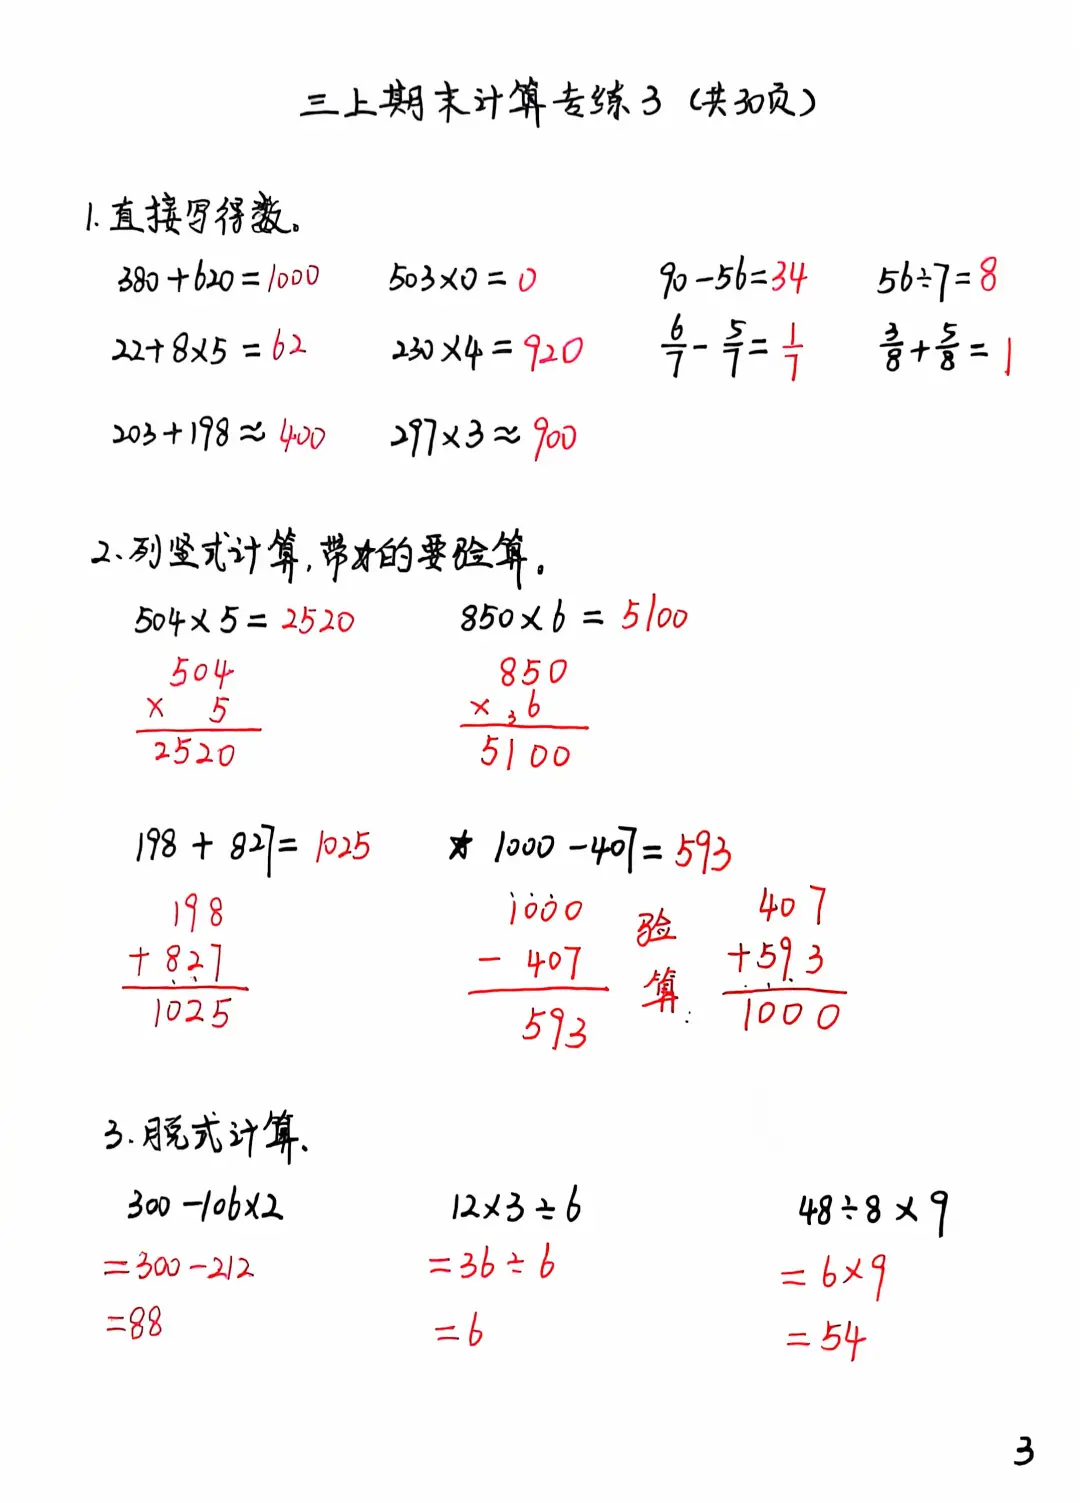 三上期末计算专练3（共30页）
1.直接写得数。
380+620=1000 503×0=0 90-56=34 56÷7=8
22+8×5=62 230×4=920 6/7-5/7=1/7 3/8+5/8=1
203+198≈400 297×3≈900
2、列竖式计算,带★的要验算。
504×5=2520 850×6=5100
504 850
× 5 × 3 6
2520 5100
198+827=1025 ★1000-407=593
198 1000 验 407
+827 -407 算: +593
1025 593 1000
3.脱式计算、
300-106×2 12×3÷6 48÷8×9
=300-212 =36÷6 =6×9
=88 =6 =54
3